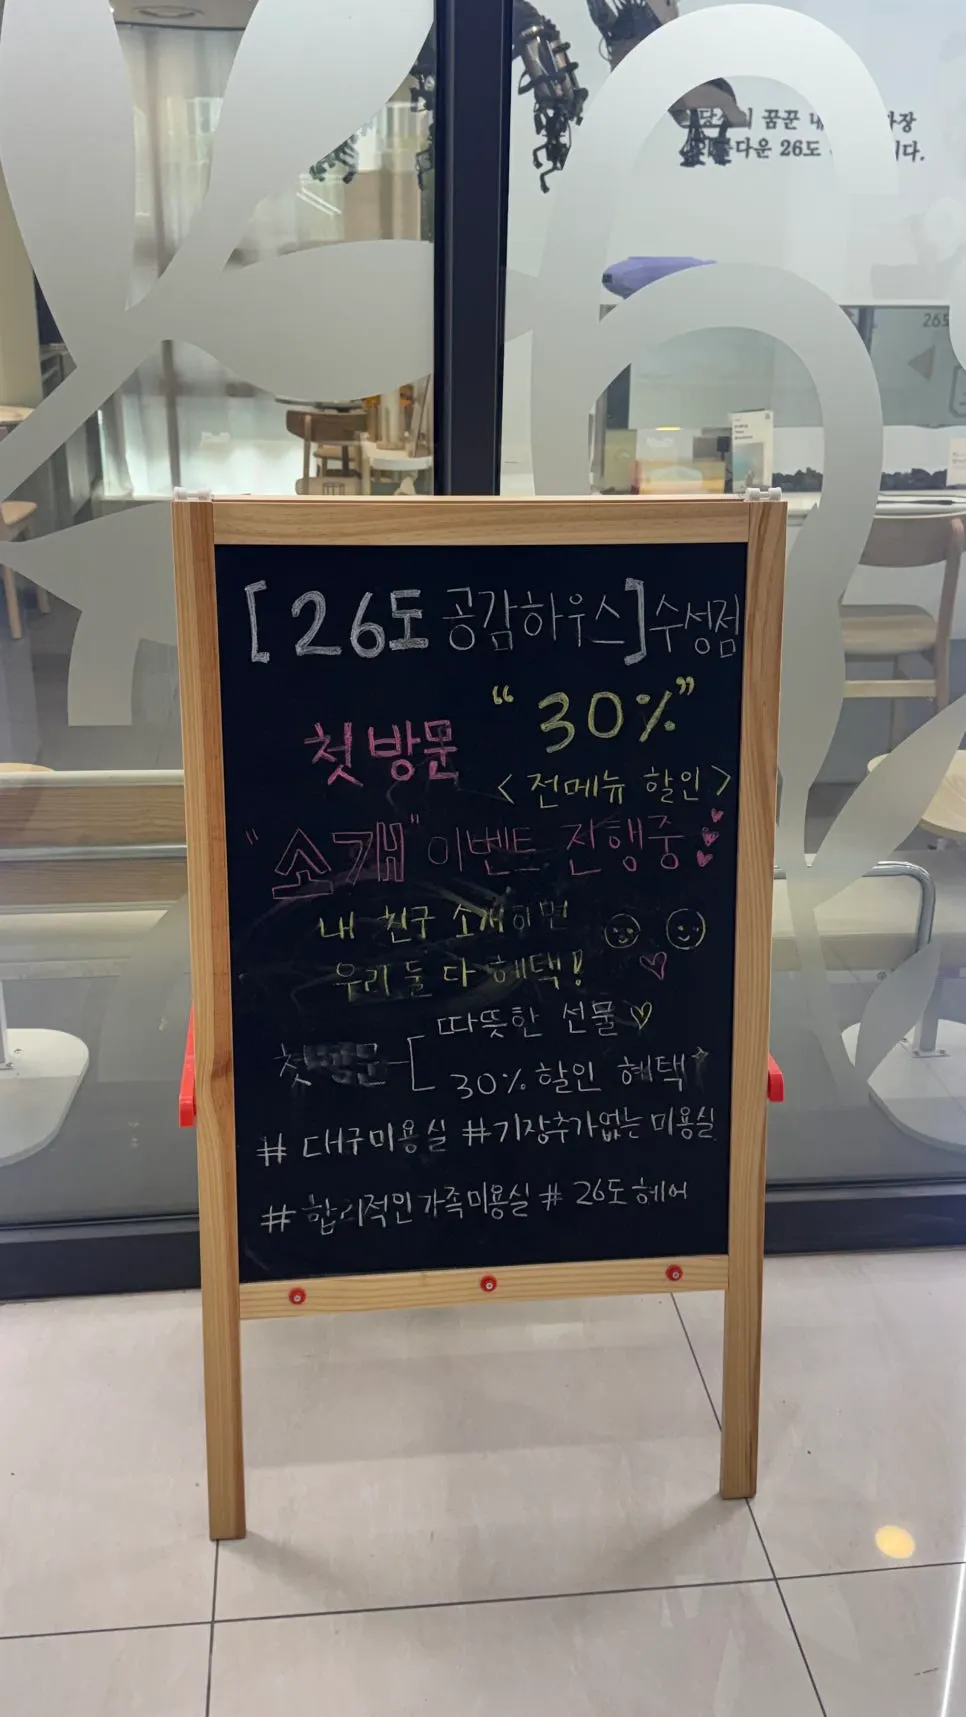 꿈꾼
다운 26도
[26도 공감하우스] 수성점
첫 방문 "30%"
<전메뉴 할인>
"소개" 이벤트 진행중
내 친구 소개하면
우리 둘 다 혜택!
따뜻한 선물
첫방문
30% 할인 혜택
#대구미용실 #기장추가없는미용실
#합리적인가족미용실 #26도헤어